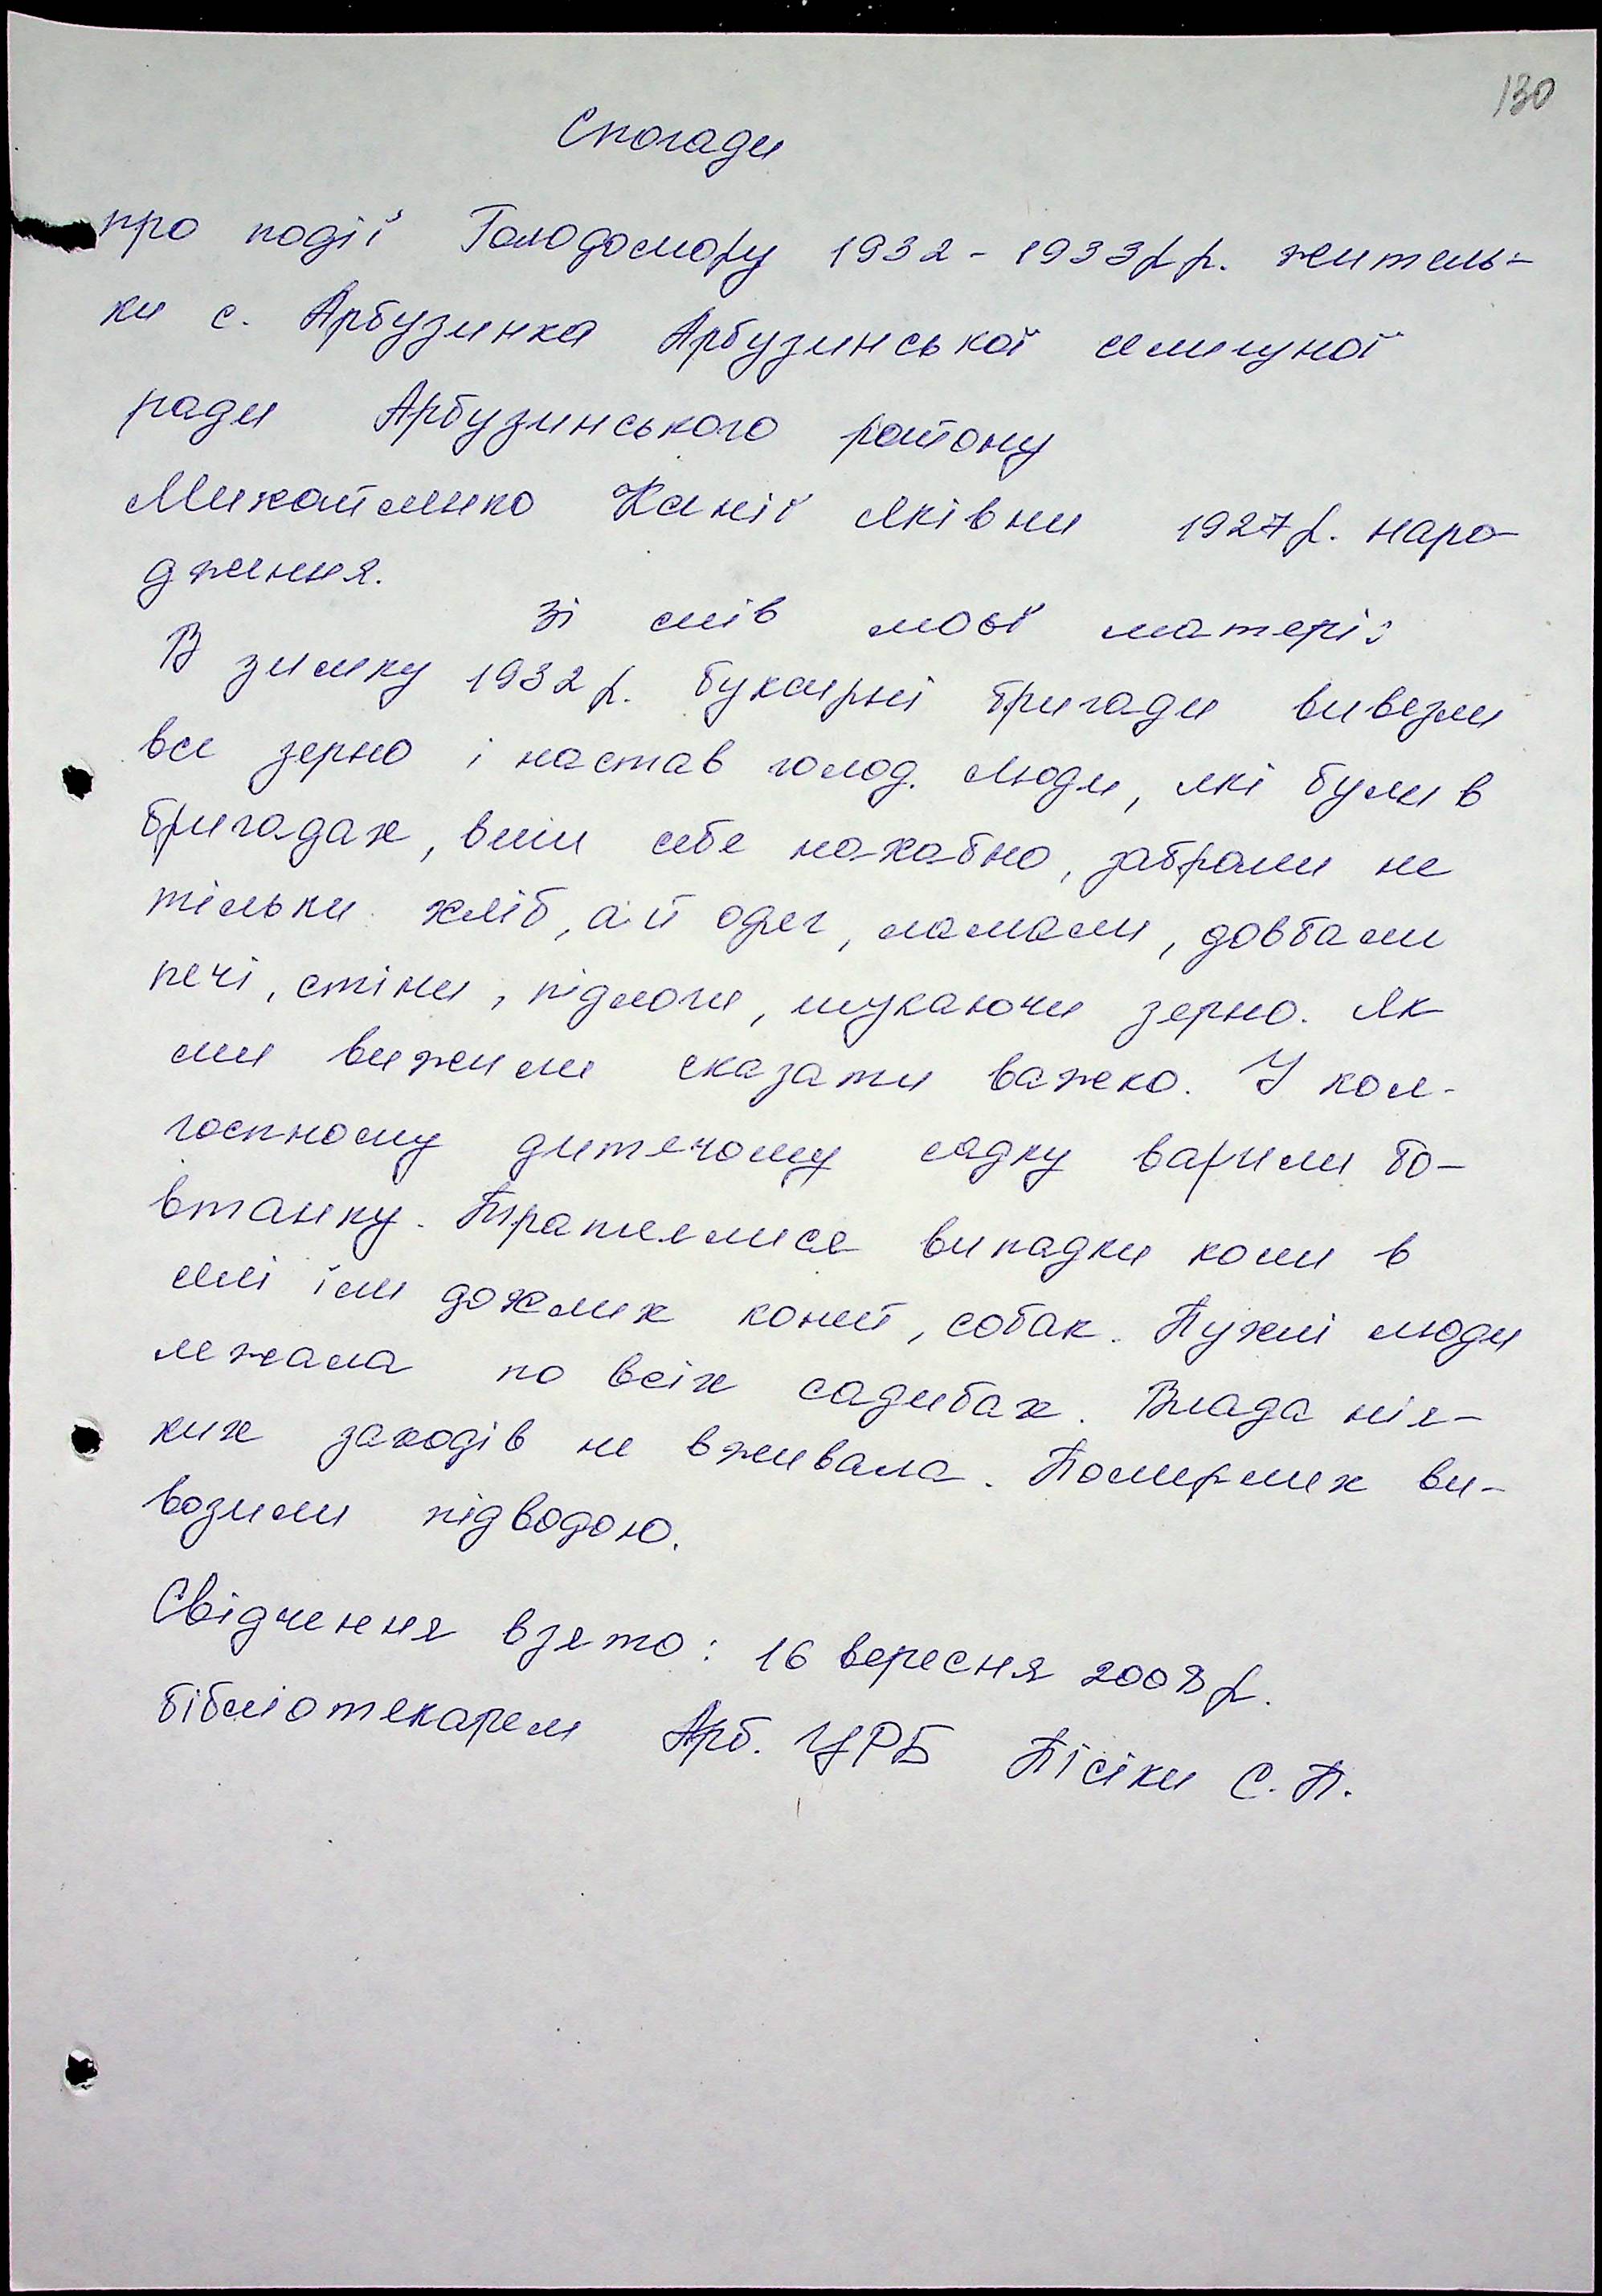 130
Спогади
про події Голодомору 1932-1933р.р. житель-
ки с. Арбузинка Арбузинської селищної
ради Арбузинського району
Михайленко Ксенії Яківни 1927р. наро-
дження.
Зі слів моєї матері:
В зимку 1932 р. буксирні бригади вивезли
все зерно і настав голод. Люди, які були в
бригадах, вели себе нахабно, забрали не
тільки хліб, а й одяг, ламали, довбали
печі, стіни, підлоги, шукаючи зерно. Як
ми вижили сказати важко. У кол-
госпному дитячому садку варили бо-
втанку. Траплялися випадки коли в
селі їли дохлих коней, собак. Пухлі люди
лежала по всіх садибах. Влада нія-
ких заходів не вживала. Померлих ви-
возили підводою.
Свідчення взято: 16 вересня 2008р.
бібліотекарем Арб. ЦРБ Пісіки С.П.